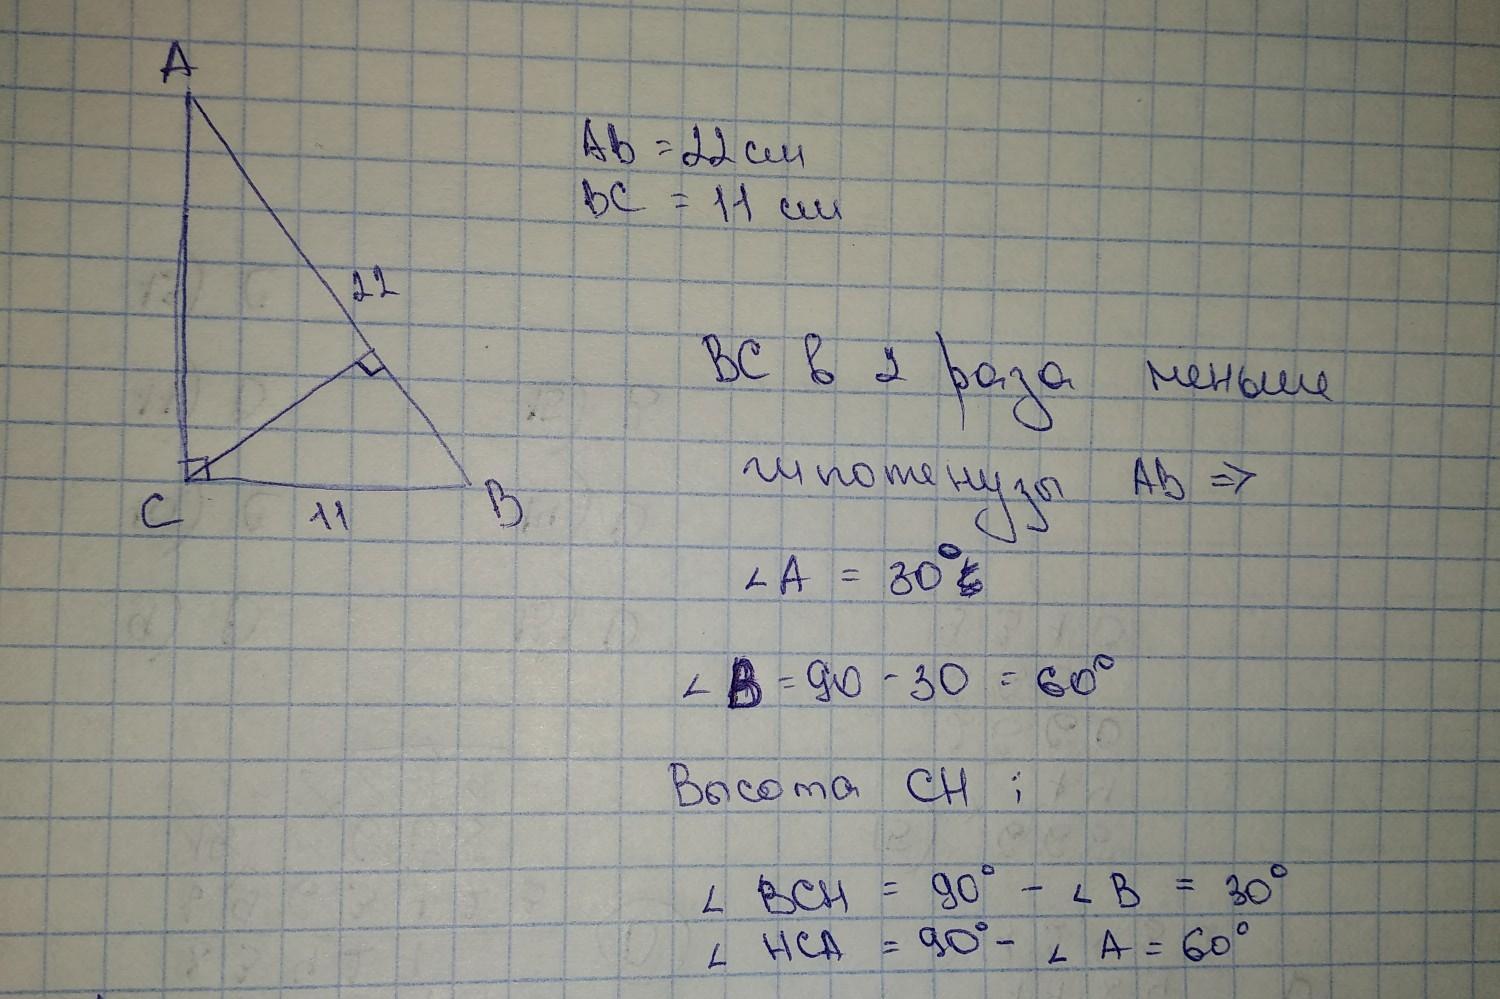 A
AB = 22 см
BC = 11 см
22
BC в 2 раза меньше
гипотенузы AB =>
C
11
B
∠A = 30°
∠B = 90 - 30 = 60°
Высота CH ;
∠ BCH = 90° - ∠B = 30°
∠ HCA = 90° - ∠ A = 60°